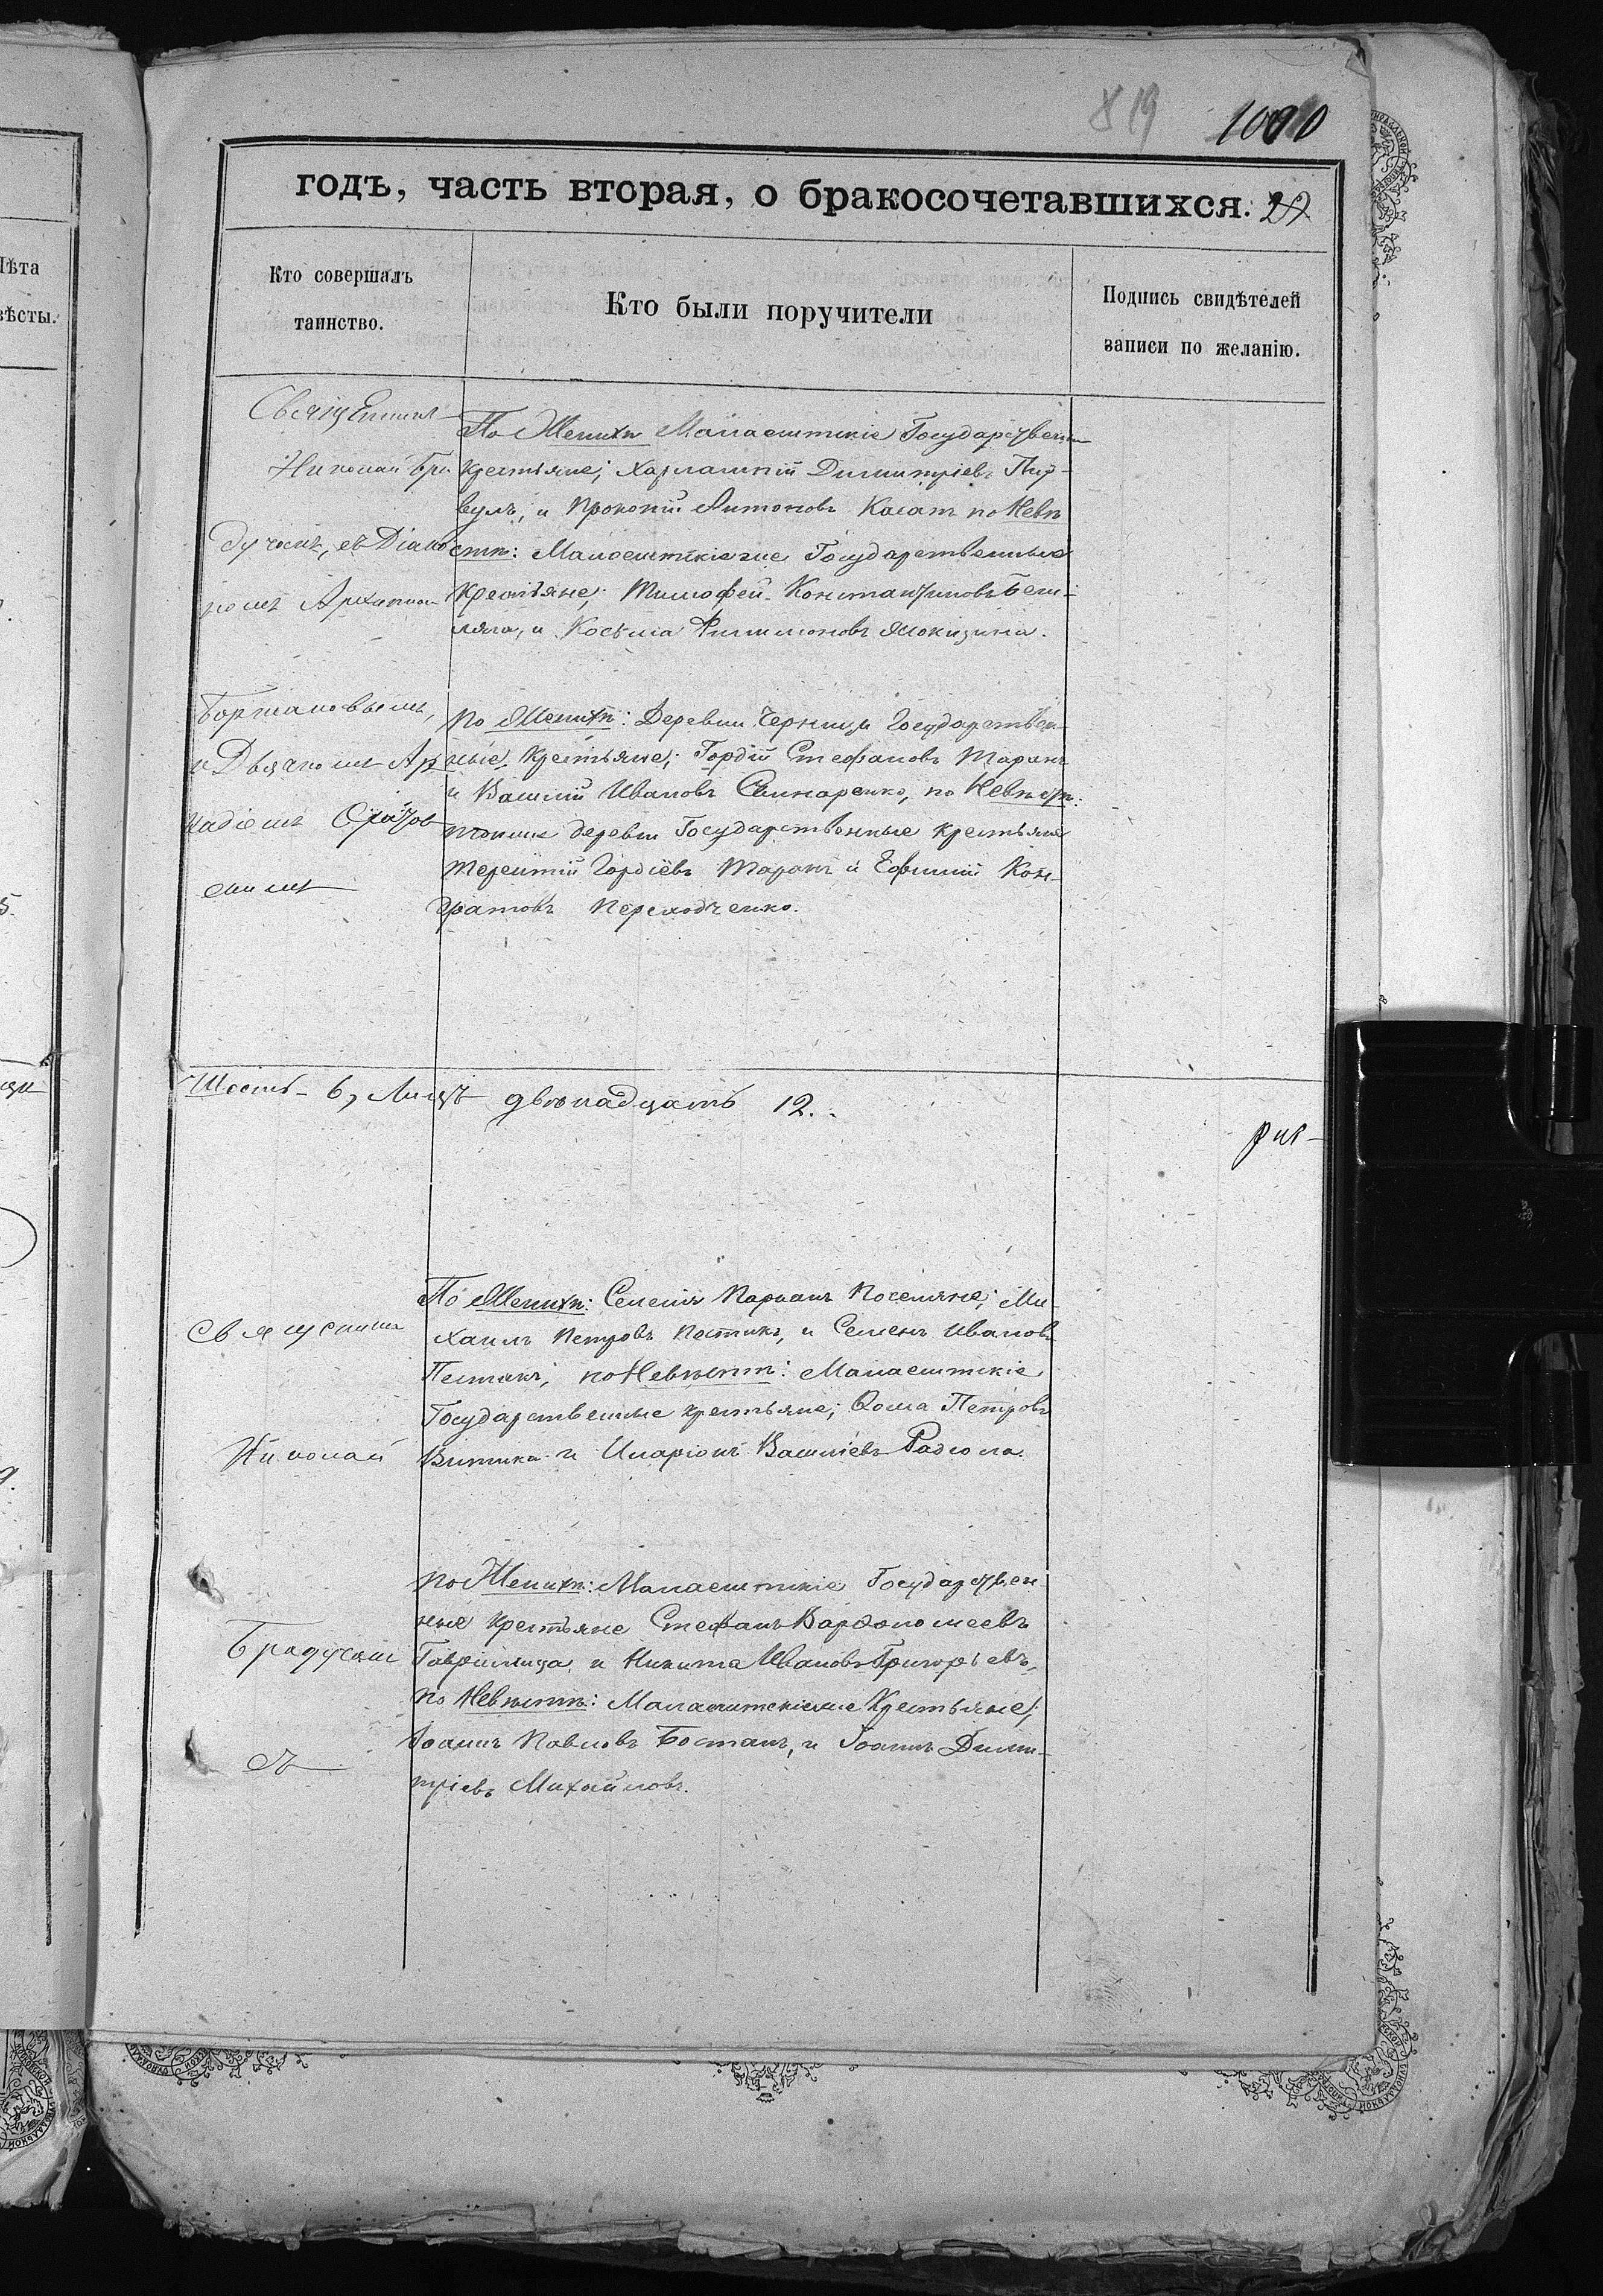 819 1000
годъ, часть вторая, о бракосочетавшихся. 27
Лѣта
вѣсты.
Кто совершалъ
таинство.
Кто были поручители
Подпись свидѣтелей
записи по желанію.
Священник
Николай Бра
дучанъ, съ Діако
номъ Архипом
Боржаковымъ,
и Дьячкомъ Ар
кадіемъ
По Женихѣ Малаештскіе Государствен
Крестьяне; Харлампій Димитріевъ Пыр-
вулъ, и Прокопій Антоновъ по Невѣ
стѣ: Малаештскіе же Государственные
Крестьяне; Тимофей Константиновъ Беш-
ляга, и Косьма Филимоновъ
По Женихѣ: Деревни Черница Государствен-
ные Крестьяне; Гордій Стефановъ Таранъ
и Василій Ивановъ по Невѣстѣ:
тойже деревни Государственные крестьяне
Терентій Гордіевъ Таранъ и Ефимій Кон-
дратовъ Переходченко.
Шесть - 6, Лицъ двѣнадцать 12.
По Женихѣ: Селенія Паркан Поселяне; Ми-
хаилъ Петровъ Постикъ, и Семенъ Ивановъ
по Невѣстѣ: Малаештскіе
Государственные крестьяне; Ѳома Петровъ
и Иларіонъ Василіевъ
Священник
Николай
Брадучан
съ
По Женихѣ: Малаештскіе Государствен
ные крестьяне Стефанъ Варфоломеевъ
Гаврилица, и Никита Ивановъ Григорьевъ,
по Невѣстѣ: Малаештскіеже Крестьяне;
Іоаннъ Павловъ Бостанъ, и Іоаннъ Дими-
тріевъ Михайловъ.